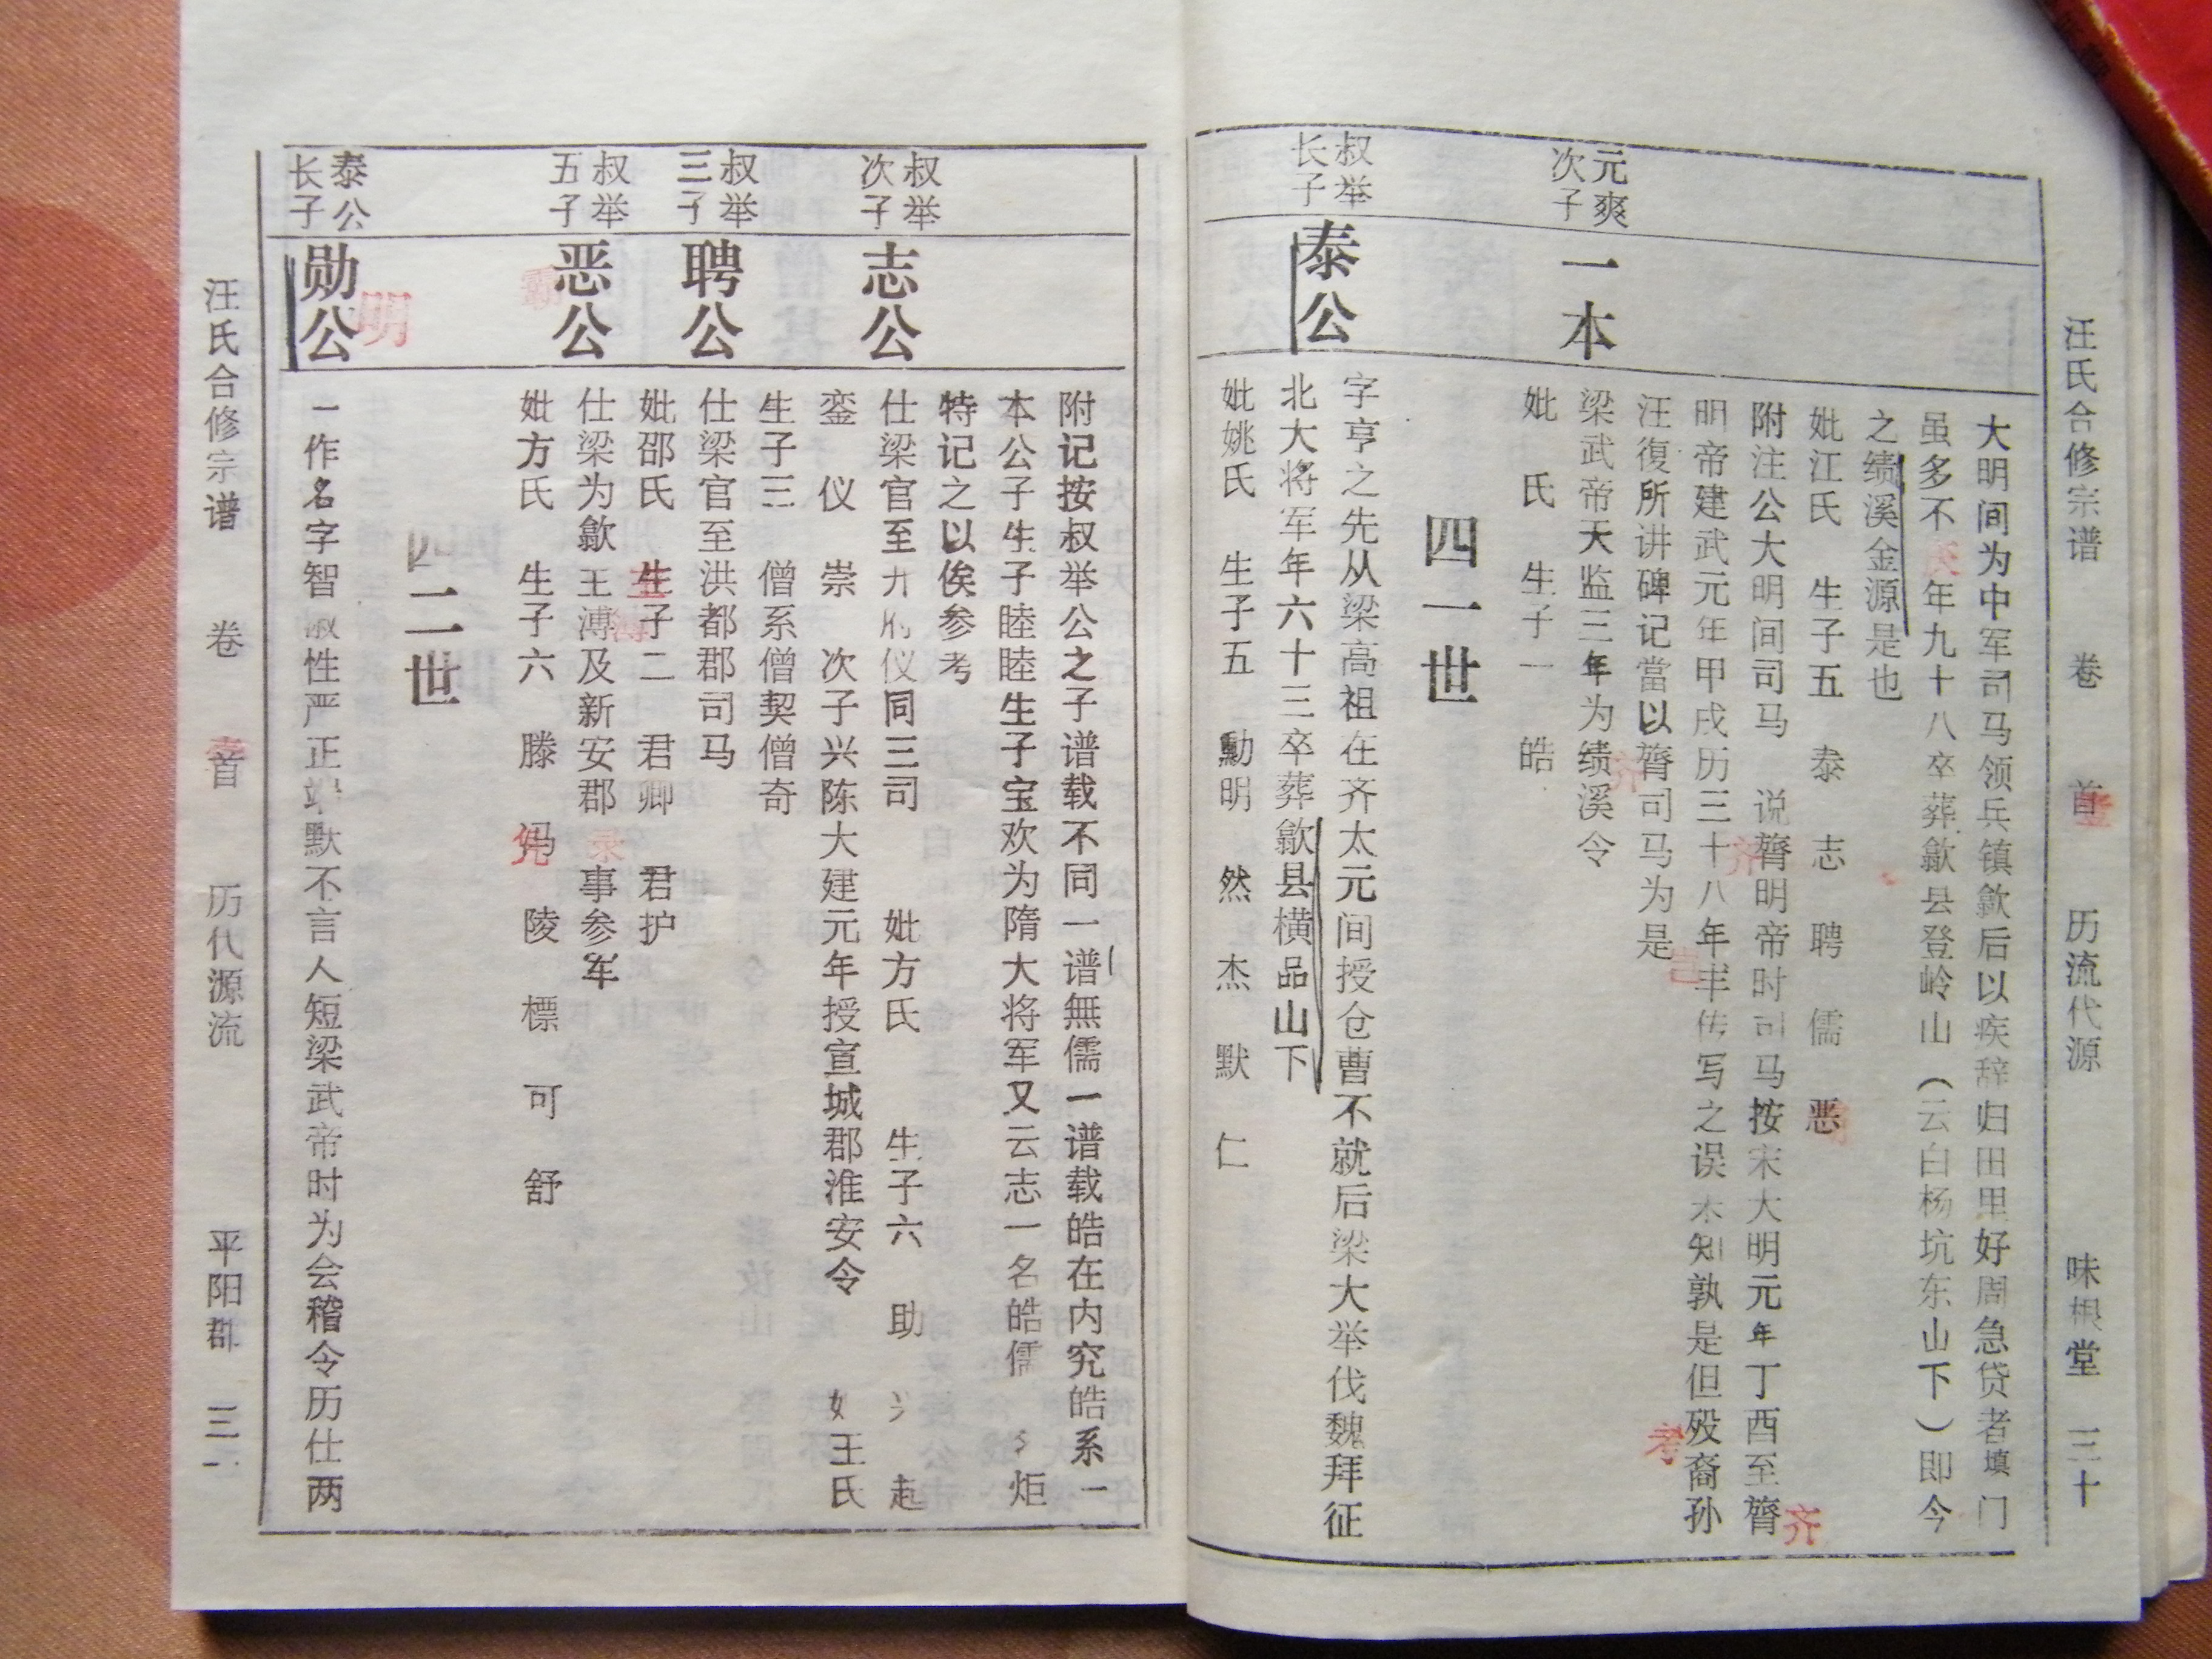 汪氏合修宗谱 卷 首 历流代源 味根堂 三十
大明间为中军司马领兵镇歙后以疾辞归田里好周急贷者填门
虽多不 年九十八卒葬歙县登岭山（云白杨坑东山下）即今
之绩溪金源是也
妣江氏 生子五 泰 志 聘 儒 恶
附注公大明间司马 说膌明帝时司马按宋大明元年丁酉至膌
齐
明帝建武元年甲戌历三十八年 传写之误未知孰是但殁裔孙
汪復所讲碑记當以膌司马为是
齐
考
元爽
次子
一本
梁武帝天监三年为绩溪令
妣 氏 生子一 皓
四一世
叔举
长子
泰公
字亨之先从梁高祖在齐太元间授仓曹不就后梁大举伐魏拜征
北大将军年六十三卒葬歙县横品山下
妣姚氏 生子五 勳明 然 杰 默 仁
附记按叔举公之子谱载不同一谱無儒一谱载皓在内究皓系一
本公子生子睦睦生子宝欢为隋大将军又云志一名皓儒 炬
特记之以俟参考
叔举
次子
志公
仕梁官至 仪同三司 妣方氏 生子六 助 起
銮 仪 崇 次子兴陈大建元年授宣城郡淮安令 王氏
生子三 僧系僧契僧奇
叔举
三子
聘公
仕梁官至洪都郡司马
妣邵氏 生子二 君卿 君护
叔举
五子
恶公
霸
仕梁为歙王溥及新安郡 录 事参军
妣方氏 生子六 滕 冯 陵 標 可 舒
四二世
泰公
长子
勋公
明
一作名字智 性严正端默不言人短梁武帝时为会稽令历仕两
汪氏合修宗谱 卷 首 历代源流 平阳郡 三一